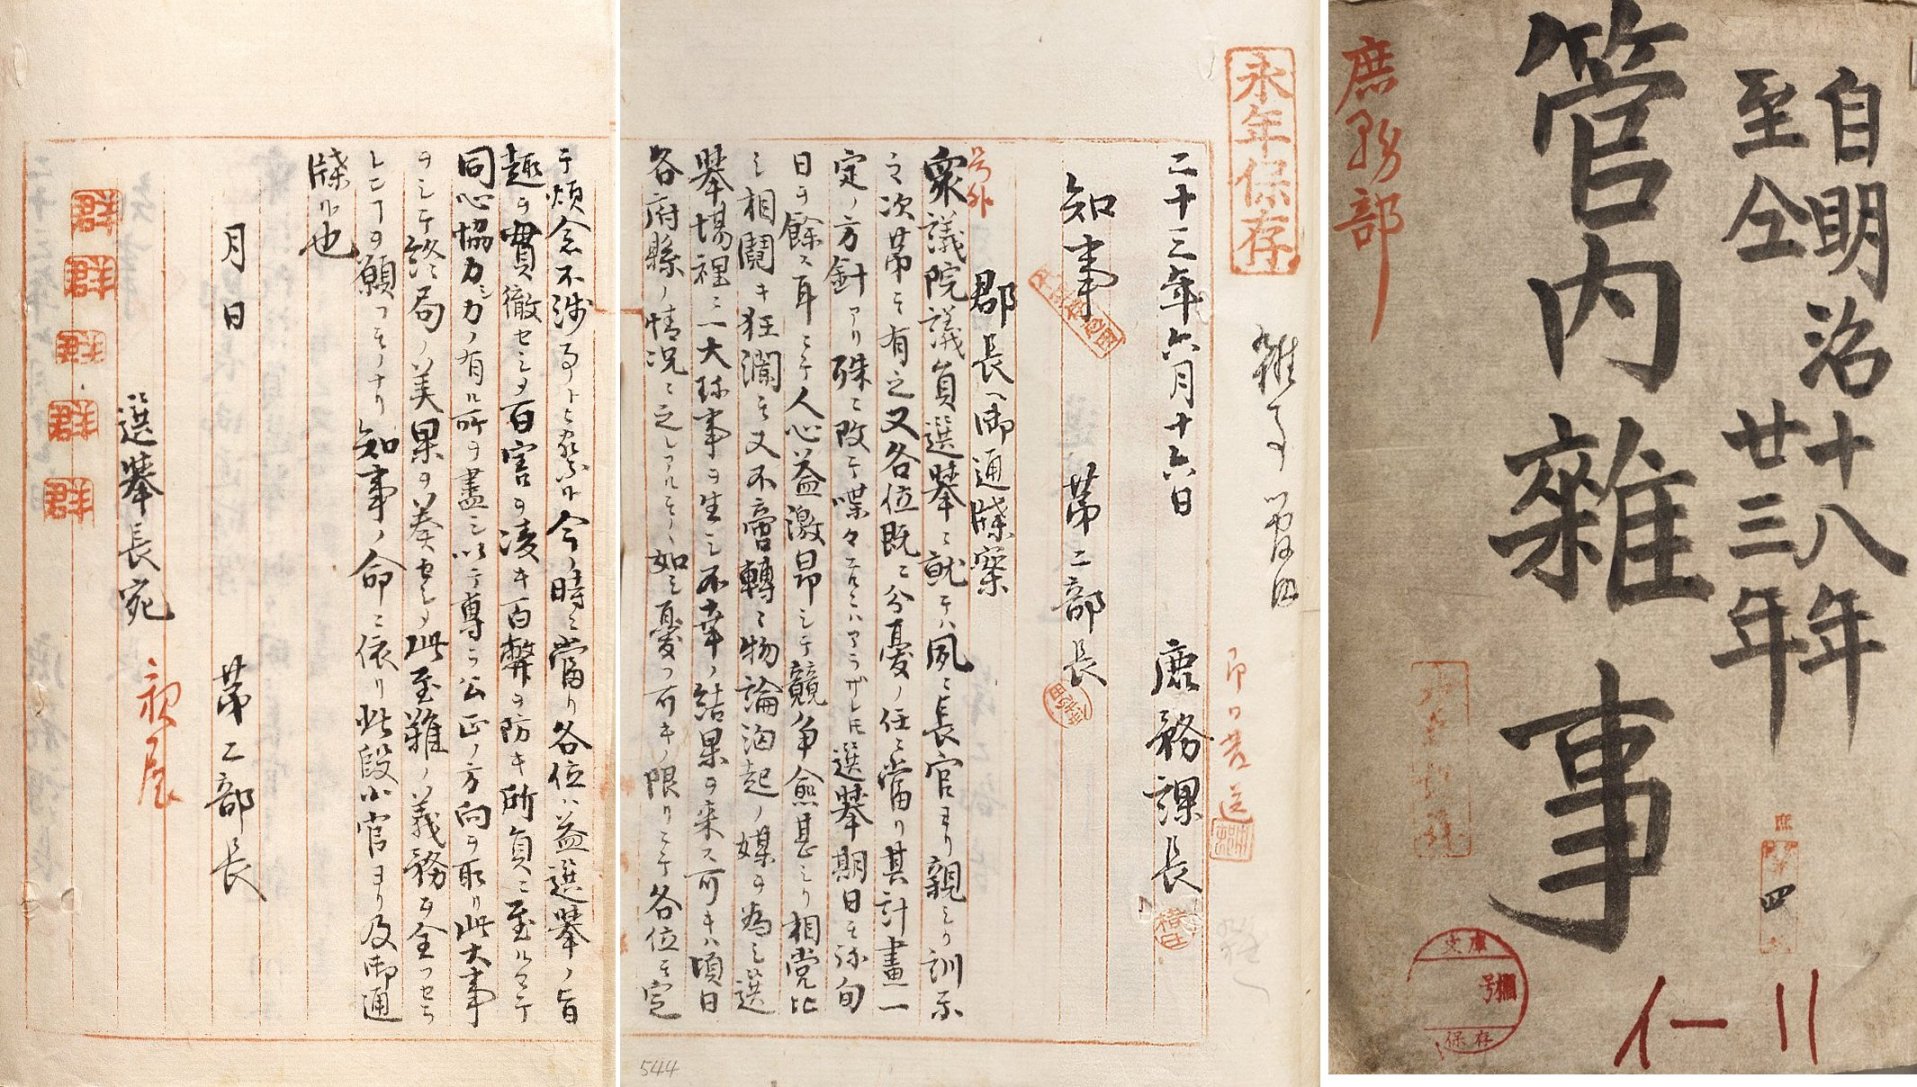 自明治十八年
至仝廿三年
管内雑事
庶務部
庶
四
文庫
号
棚
保存
イ一11
永年保存
二十三年六月十六日
庶務課長
知事
第二部長
郡長ヘ御通牒案
号外
衆議院議員選挙ニ就テハ夙ニ長官ヨリ親シク訓示
之次第モ有之又各位既ニ分憂ノ任ニ当リ其計畫一
定ノ方針アリ殊ニ改テ喋々スヘキニハアラザレトモ選挙期日モ弥旬
日ヲ餘ス耳ニテ人心益激昂シテ競争愈甚シク相党比
シ相鬩キ狂瀾モ又不啻轉シ物論洶起ノ媒ヲ為シ選
挙場裡ニ一大珎事ヲ生シ不幸ノ結果ヲ来ス可キハ頃日
各府縣ノ情况ニ之レアルモノヽ如シ憂フ可キノ限リニテ各位モ定
テ煩念不渉事ト存候ヘトモ今ノ時ニ當リ各位ハ益選挙ノ旨
趣ヲ貫徹セシメ百害ヲ凌キ百弊ヲ防キ所負ニ至ルマテ
同心協力シ力ノ有ル所ヲ盡シ以テ尊ラ公正ノ方向ヲ取リ此大事
ヲシテ終局ノ美果ヲ奏セシメ此至難ノ義務ヲ全フセラ
レンコトヲ願フモノナリ知事ノ命ニ依リ此段小官ヨリ及御通
牒候也
月日
第二部長
選挙長宛
親展
群
群
群
群
群
544